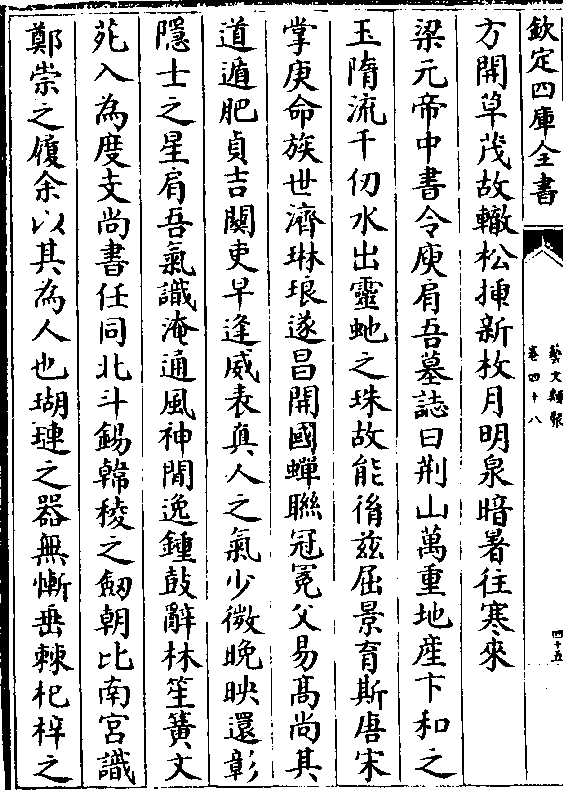 欽定四庫全書
藝文類聚
卷四十八
四十五
方開草茂故轍松挿新枚月明泉暗暑往寒來
梁元帝中書令庾肩吾墓誌曰荆山萬重地産卞和之
玉隋流千仞水出靈虵之珠故能脩兹屈景育斯唐宋
掌庾命族世濟琳琅遂昌開國蟬聯冠冕父易髙尚其
道遁肥貞吉關吏早逢威表真人之氣少微晩映還彰
隱士之星肩吾氣識淹通風神閒逸鍾鼓辭林笙簧文
苑入為度支尚書任同北斗錫韓稜之劒朝比南宫識
鄭崇之履余以其為人也瑚璉之器無慚垂棘杞梓之